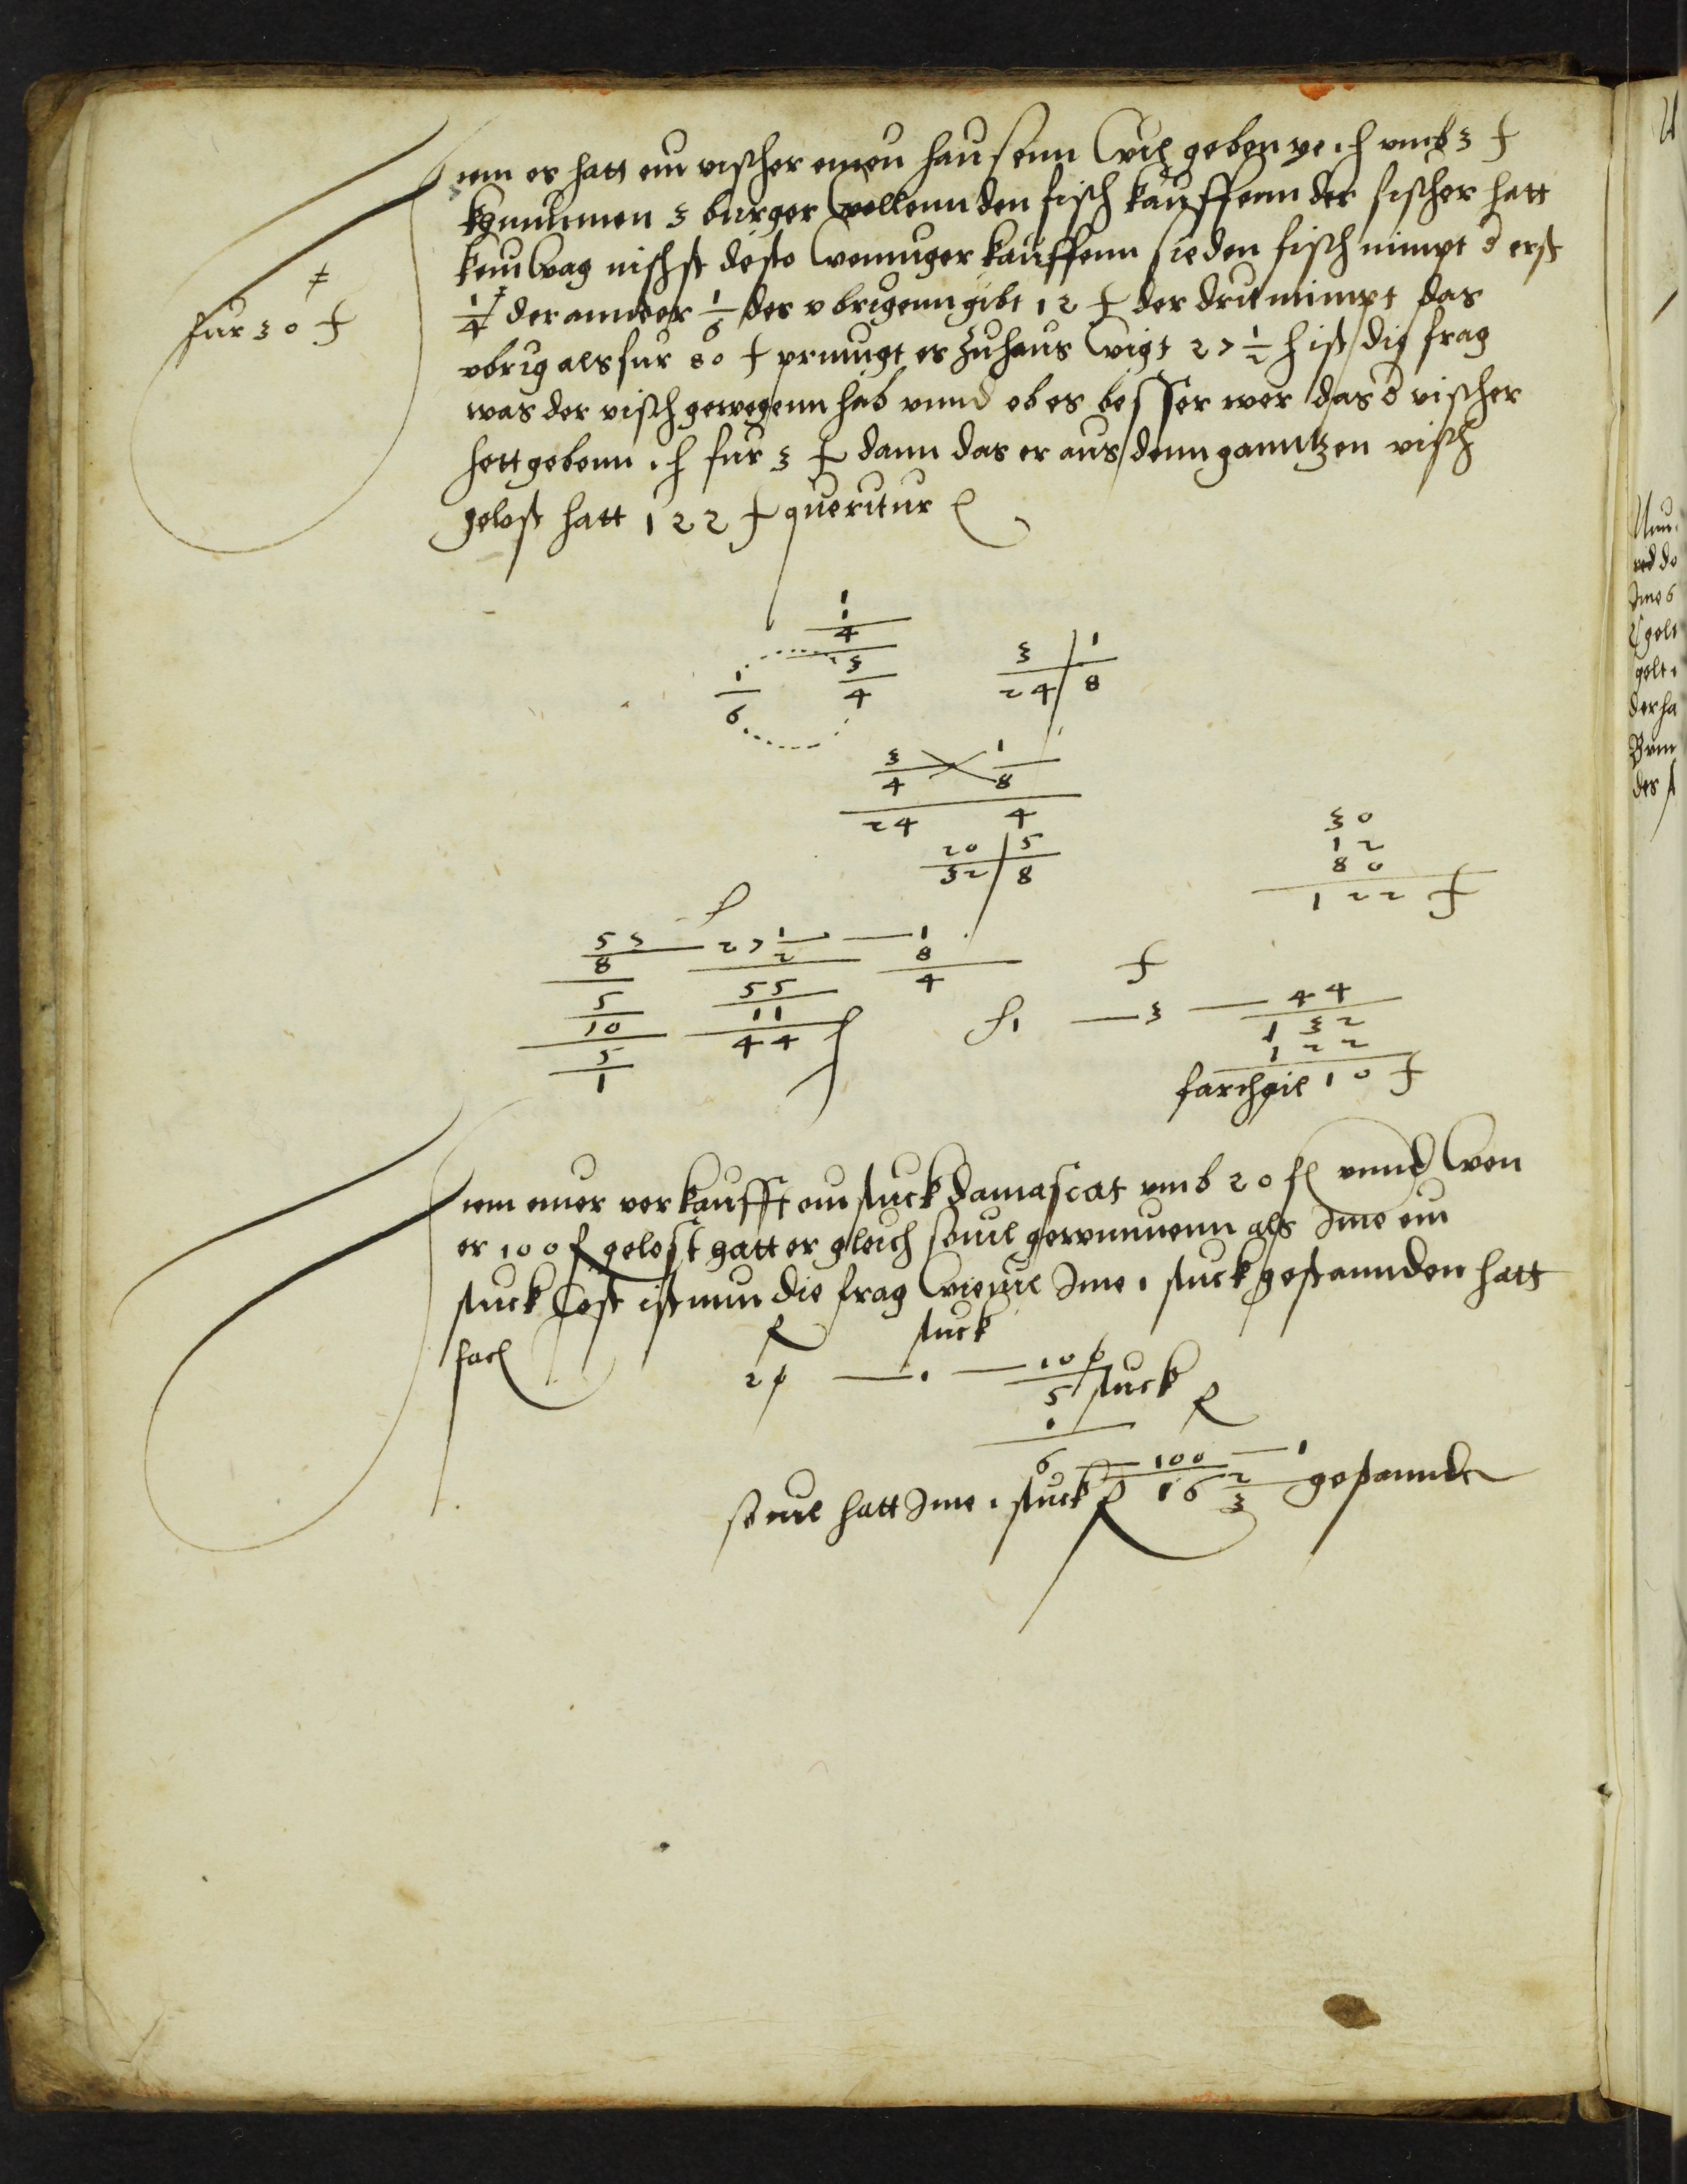 Item es hatt ein vischer einen hausenn wil geben ye 1 ℔ umb 3 ß
khummen 3 burger wellenn den fisch kauffenn der fischer hatt
kein wag nichst desto wenniger kauffenn sie den fisch nimpt d erst
1/4 ǂ der annder 1/6 des ubrigenn gibt 12 ß der drit nimpt das
ǂ
fur 30 ß
ubrig als fur 80 ß prinngt es zu haus wigt 27 1/2 ℔ ist die frag
was der visch gewegenn hab unnd ob es besser wer das d vischer
hett gebenn 1 ℔ fur 3 ß dann das er aus denn ganntzen visch
gelost hatt 122 ß queritur
1
1/4
1/6 3/4 3/24 1/8
3/4 1/8
24 4
20/32 5/8
30
12
80
122 ß
℔
5/8 27 1/2 1
8
5 55 4
10 11
5 44 ℔
1
ß
℔ 1 3 44
132
122
10 ß
Item einer verkaufft ein stuck damascat umb 20 fl unnd wen
er 100 fl gelost hatt er gleich sovil gewunnenn als Ime ein
stuck cost ist nun die frag wievil Ime 1 stuck gestannden hatt
fl stuck
fac
20 1 100
5 stuck
1 fl
6 100 1
sovil hatt Ime 1 stuck fl 16 2/3 gestannden